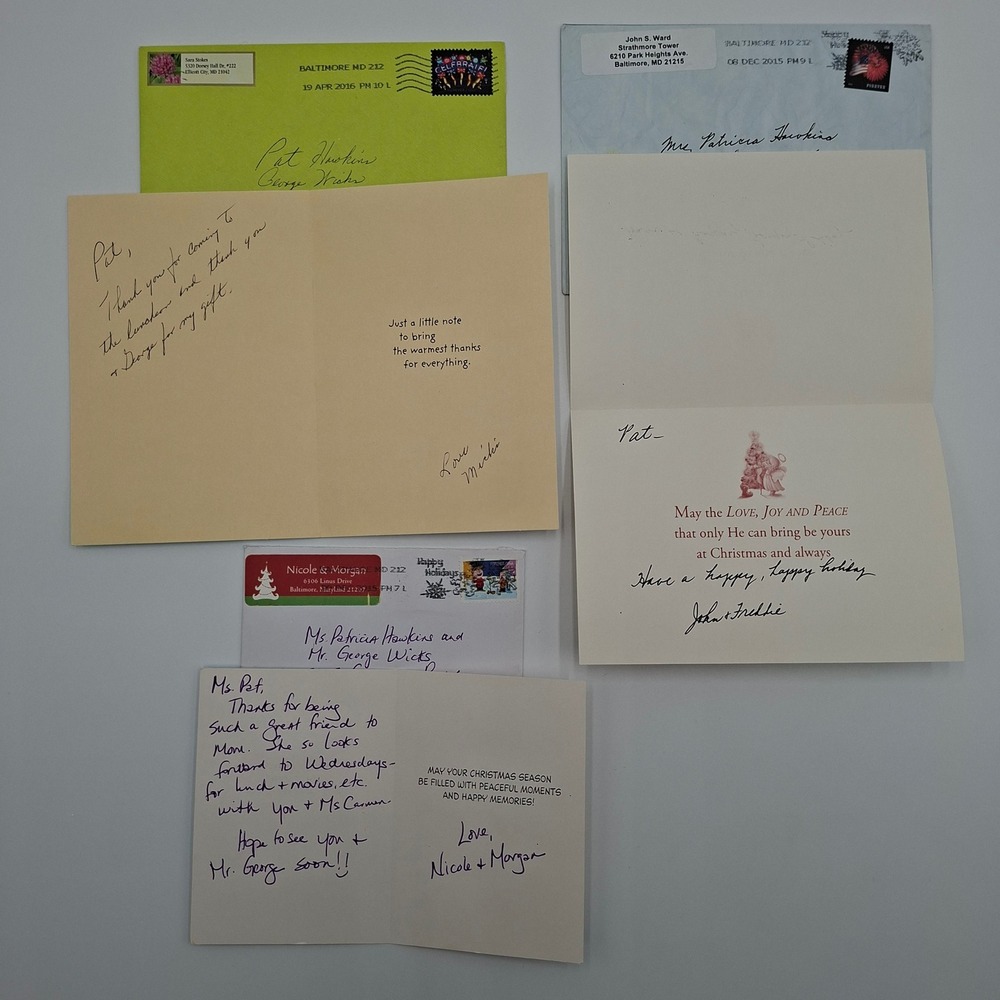 Sara Stokes
5320 Dorsey Hall Dr. #222
Ellicott City, MD 21042
BALTIMORE MD 212
19 APR 2016 PM 10 L
CELEBRATE!
Pat Hawkins
George Wicks
Pat,
Thank you for coming to
the luncheon and thank you
+ George for my gift.
Just a little note
to bring
the warmest thanks
for everything.
Love
Micki
John S. Ward
Strathmore Tower
6210 Park Heights Ave.
Baltimore, MD 21215
BALTIMORE MD 212
08 DEC 2015 PM 9 L
Happy
FOREVER
Mrs. Patricia Hawkins
Pat–
May the LOVE, JOY AND PEACE
that only He can bring be yours
at Christmas and always
Have a happy, happy holiday
John & Freddie
Nicole & Morgan
6106 Linus Drive
Baltimore, Maryland
MD 212
15 PM 7 L
Happy
Holidays
Ms. Patricia Hawkins and
Mr. George Wicks
Ms. Pat,
Thanks for being
such a great friend to
Mom. She so looks
forward to Wednesdays-
for lunch + movies, etc.
with you + Ms Carmen.
Hope to see you +
Mr. George soon!!
MAY YOUR CHRISTMAS SEASON
BE FILLED WITH PEACEFUL MOMENTS
AND HAPPY MEMORIES!
Love,
Nicole + Morgan